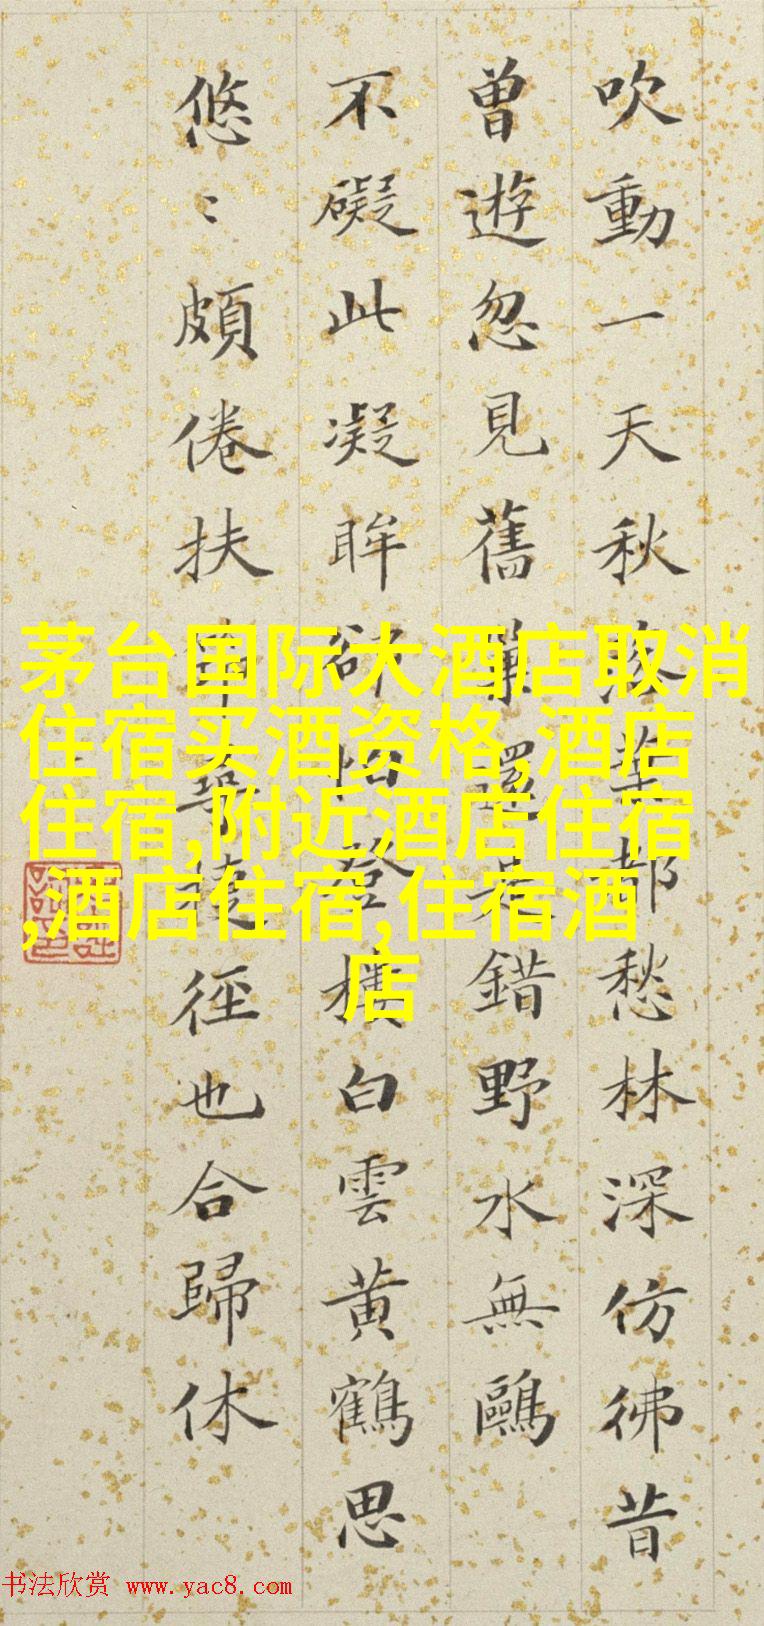 吹動一天秋落葉都愁林深仿彿昔
曾遊忽見舊巢還是錯野水無鷗
不礙此凝眸欲怕登樓白雲黃鶴思
悠〻頗倦扶尋捷徑也合歸休
茅台国际大酒店取消
住宿买酒资格,酒店
住宿,附近酒店住宿
,酒店住宿,住宿酒
店
书法欣赏 www.yac8.com